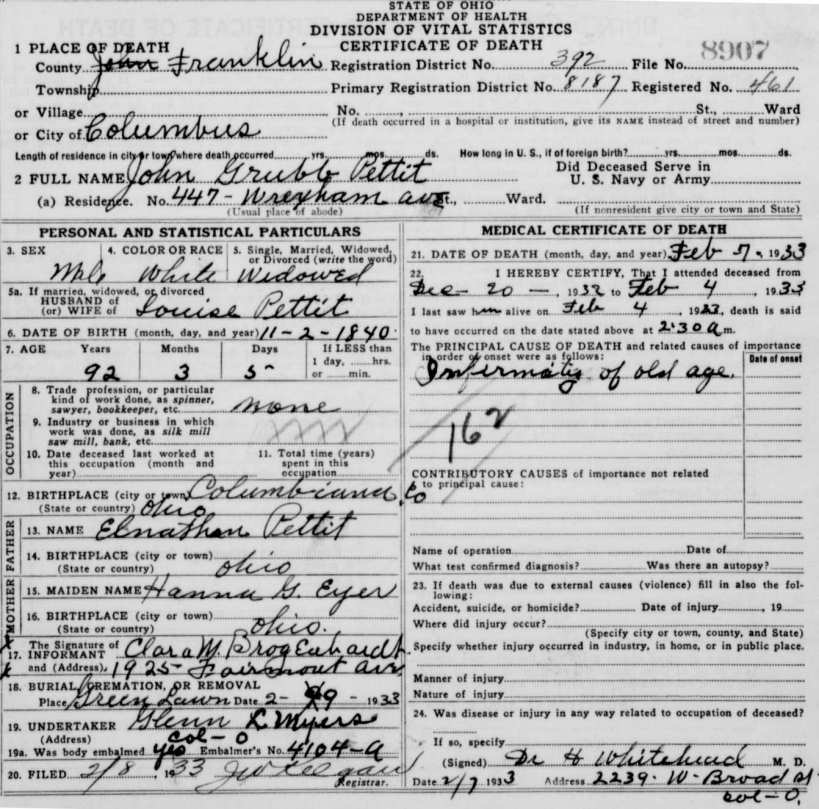 STATE OF OHIO
DEPARTMENT OF HEALTH
DIVISION OF VITAL STATISTICS
CERTIFICATE OF DEATH
8907
1 PLACE OF DEATH
County John Franklin Registration District No. 392 File No.
Township Primary Registration District No. 8187 Registered No. 461
or Village No. , St., Ward
or City of Columbus (If death occurred in a hospital or institution, give its NAME instead of street and number)
Length of residence in city or town where death occurred yrs. mos. ds. How long in U. S., if of foreign birth? yrs. mos. ds.
2 FULL NAME John Grubb Pettit Did Deceased Serve in U. S. Navy or Army
(a) Residence. No. 447 - Wrexham ave St., Ward.
(Usual place of abode) (If nonresident give city or town and State)
PERSONAL AND STATISTICAL PARTICULARS
3. SEX 4. COLOR OR RACE 5. Single, Married, Widowed, or Divorced (write the word)
Male White Widowed
5a. If married, widowed, or divorced
HUSBAND of
(or) WIFE of Louise Pettit
6. DATE OF BIRTH (month, day, and year) 11-2-1840.
7. AGE Years Months Days If LESS than
1 day, hrs.
or min.
92 3 5
OCCUPATION
8. Trade profession, or particular
kind of work done, as spinner,
sawyer, bookkeeper, etc. none
9. Industry or business in which
work was done, as silk mill
saw mill, bank, etc.
10. Date deceased last worked at
this occupation (month and
year)
11. Total time (years)
spent in this
occupation
12. BIRTHPLACE (city or town) Columbiana Co
(State or country) Ohio
FATHER
13. NAME Elnathan Pettit
14. BIRTHPLACE (city or town)
(State or country) Ohio
MOTHER
15. MAIDEN NAME Hanna G. Eyer
16. BIRTHPLACE (city or town)
(State or country) Ohio.
17. The Signature of
INFORMANT Clara M
and (Address) 1925 Fairmount Ave
18. BURIAL, CREMATION, OR REMOVAL
Place Green Lawn Date 2-9-1933
19. UNDERTAKER Glenn L Myers
(Address) Col-O
19a. Was body embalmed yes Embalmer's No. 4104-A
20. FILED 2/8, 1933
Registrar.
MEDICAL CERTIFICATE OF DEATH
21. DATE OF DEATH (month, day, and year) Feb 7, 1933
22. I HEREBY CERTIFY, That I attended deceased from
Dec - 20 -, 1932 to Feb 4, 1933
I last saw him alive on Feb 4, 1933, death is said
to have occurred on the date stated above at 2:30 a.m.
The PRINCIPAL CAUSE OF DEATH and related causes of importance
in order of onset were as follows: Date of onset
Infirmity of old age.
162
CONTRIBUTORY CAUSES of importance not related
to principal cause:
Name of operation Date of
What test confirmed diagnosis? Was there an autopsy?
23. If death was due to external causes (violence) fill in also the following:
Accident, suicide, or homicide? Date of injury , 19
Where did injury occur?
(Specify city or town, county, and State)
Specify whether injury occurred in industry, in home, or in public place.
Manner of injury
Nature of injury
24. Was disease or injury in any way related to occupation of deceased?
If so, specify
(Signed) Dr H Whitehead M. D.
Date 2/7 1933 Address 2239. W-Broad St
Col-O.